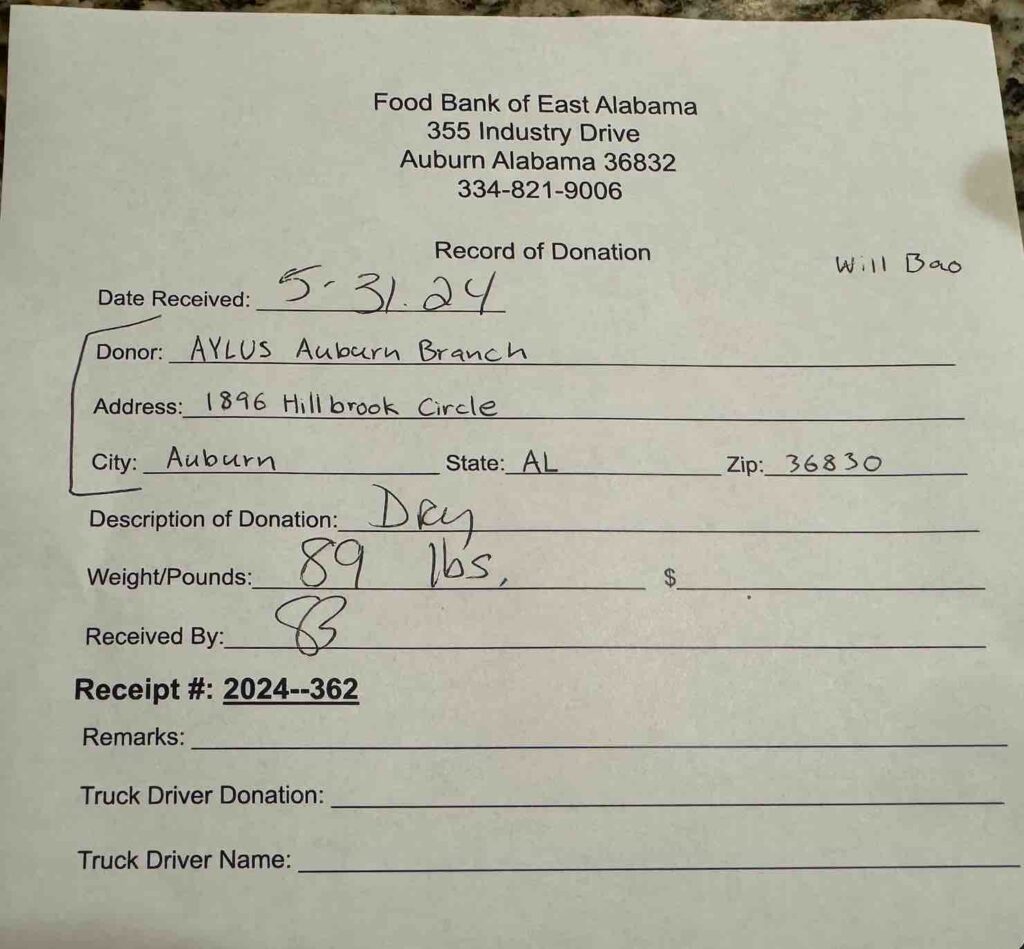 Food Bank of East Alabama
355 Industry Drive
Auburn Alabama 36832
334-821-9006
Record of Donation
Will Bao
Date Received: 5-31.24
Donor: AYLUS Auburn Branch
Address: 1896 Hillbrook Circle
City: Auburn State: AL Zip: 36830
Description of Donation: Dry
Weight/Pounds: 89 lbs. $
Received By:
Receipt #: 2024--362
Remarks:
Truck Driver Donation:
Truck Driver Name: